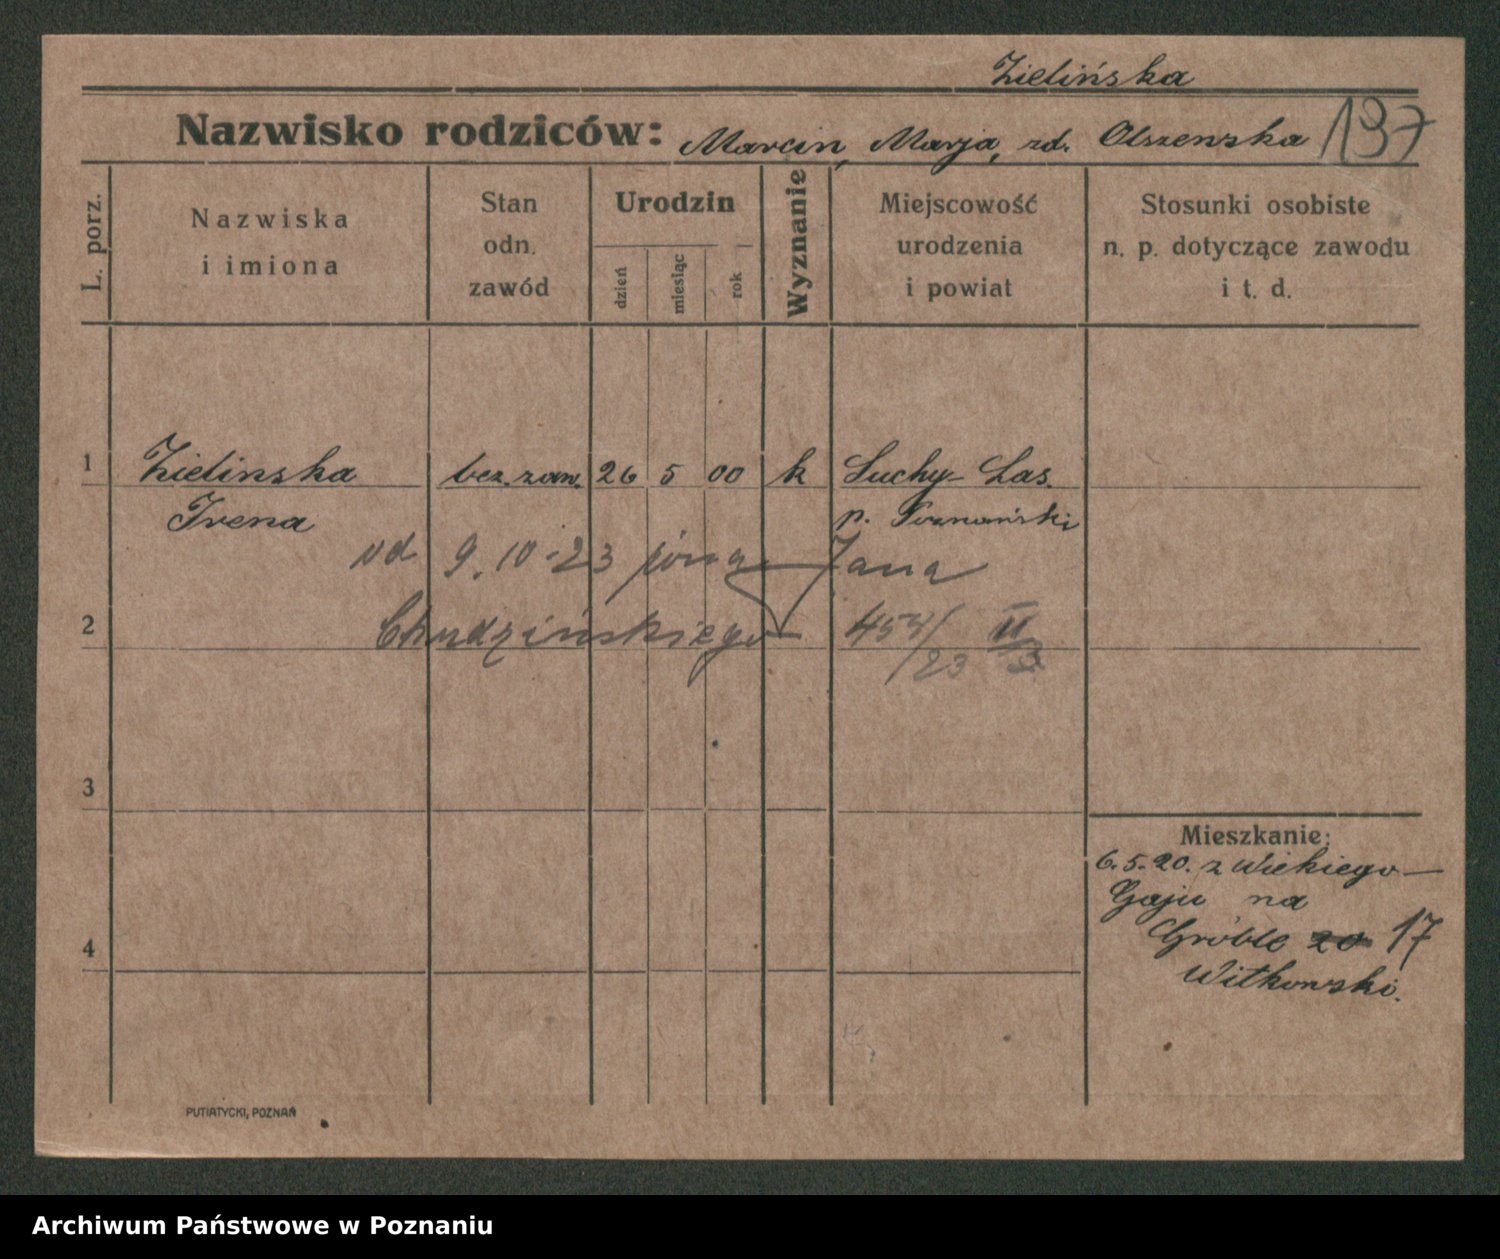 Zielińska
Nazwisko rodziców: Marcin, Marja, zd. Olszewska 137
L. porz.
Nazwiska
i imiona
Stan
odn.
zawód
Urodzin
dzień
miesiąc
rok
Wyznanie
Miejscowość
urodzenia
i powiat
Stosunki osobiste
n. p. dotyczące zawodu
i t. d.
1 Zielinska bez. zaw. 26 5 00 k Suchy-Las.
Irena p. Poznański
od 9.10-23 żona Jana
2 Chudzińskiego 454/23 II
3
Mieszkanie:
6.5.20. z Wiekiego-
Gaju na
Groble 20 17
4
Witkowski.
PUTIATYCKI, POZNAŃ
Archiwum Państwowe w Poznaniu